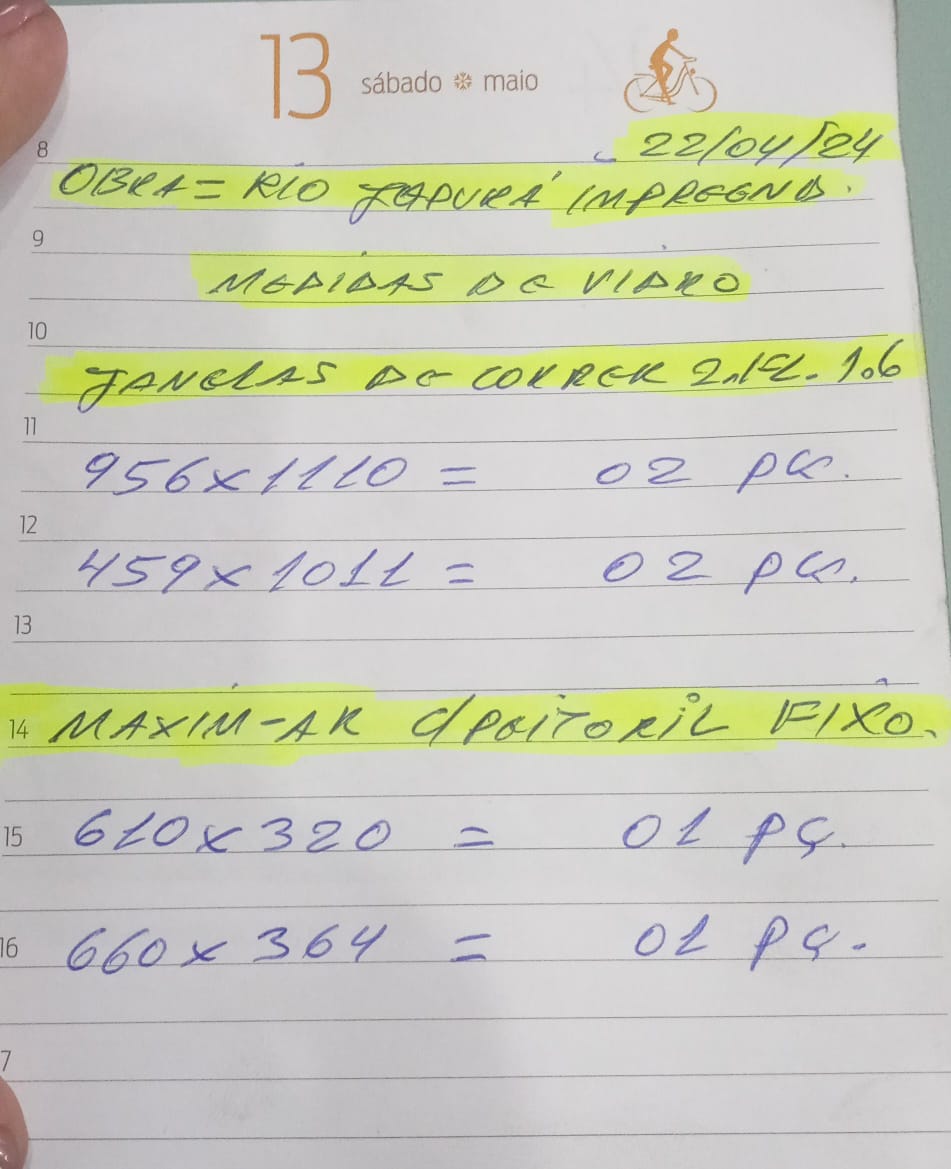 13 sábado maio
8
22/04/24
OBRA = RIO JAPURÁ IMPREGNA.
9
MEDIDAS DE VIDRO
10
JANELAS DE CORRER 2.FL. 1.6
11
956x1110 = 02 pçs.
12
459x1011 = 02 pçs.
13
14 MAXIM-AR C/PEITORIL FIXO.
15 610x320 = 01 pç.
16 660x364 = 01 pç.
7